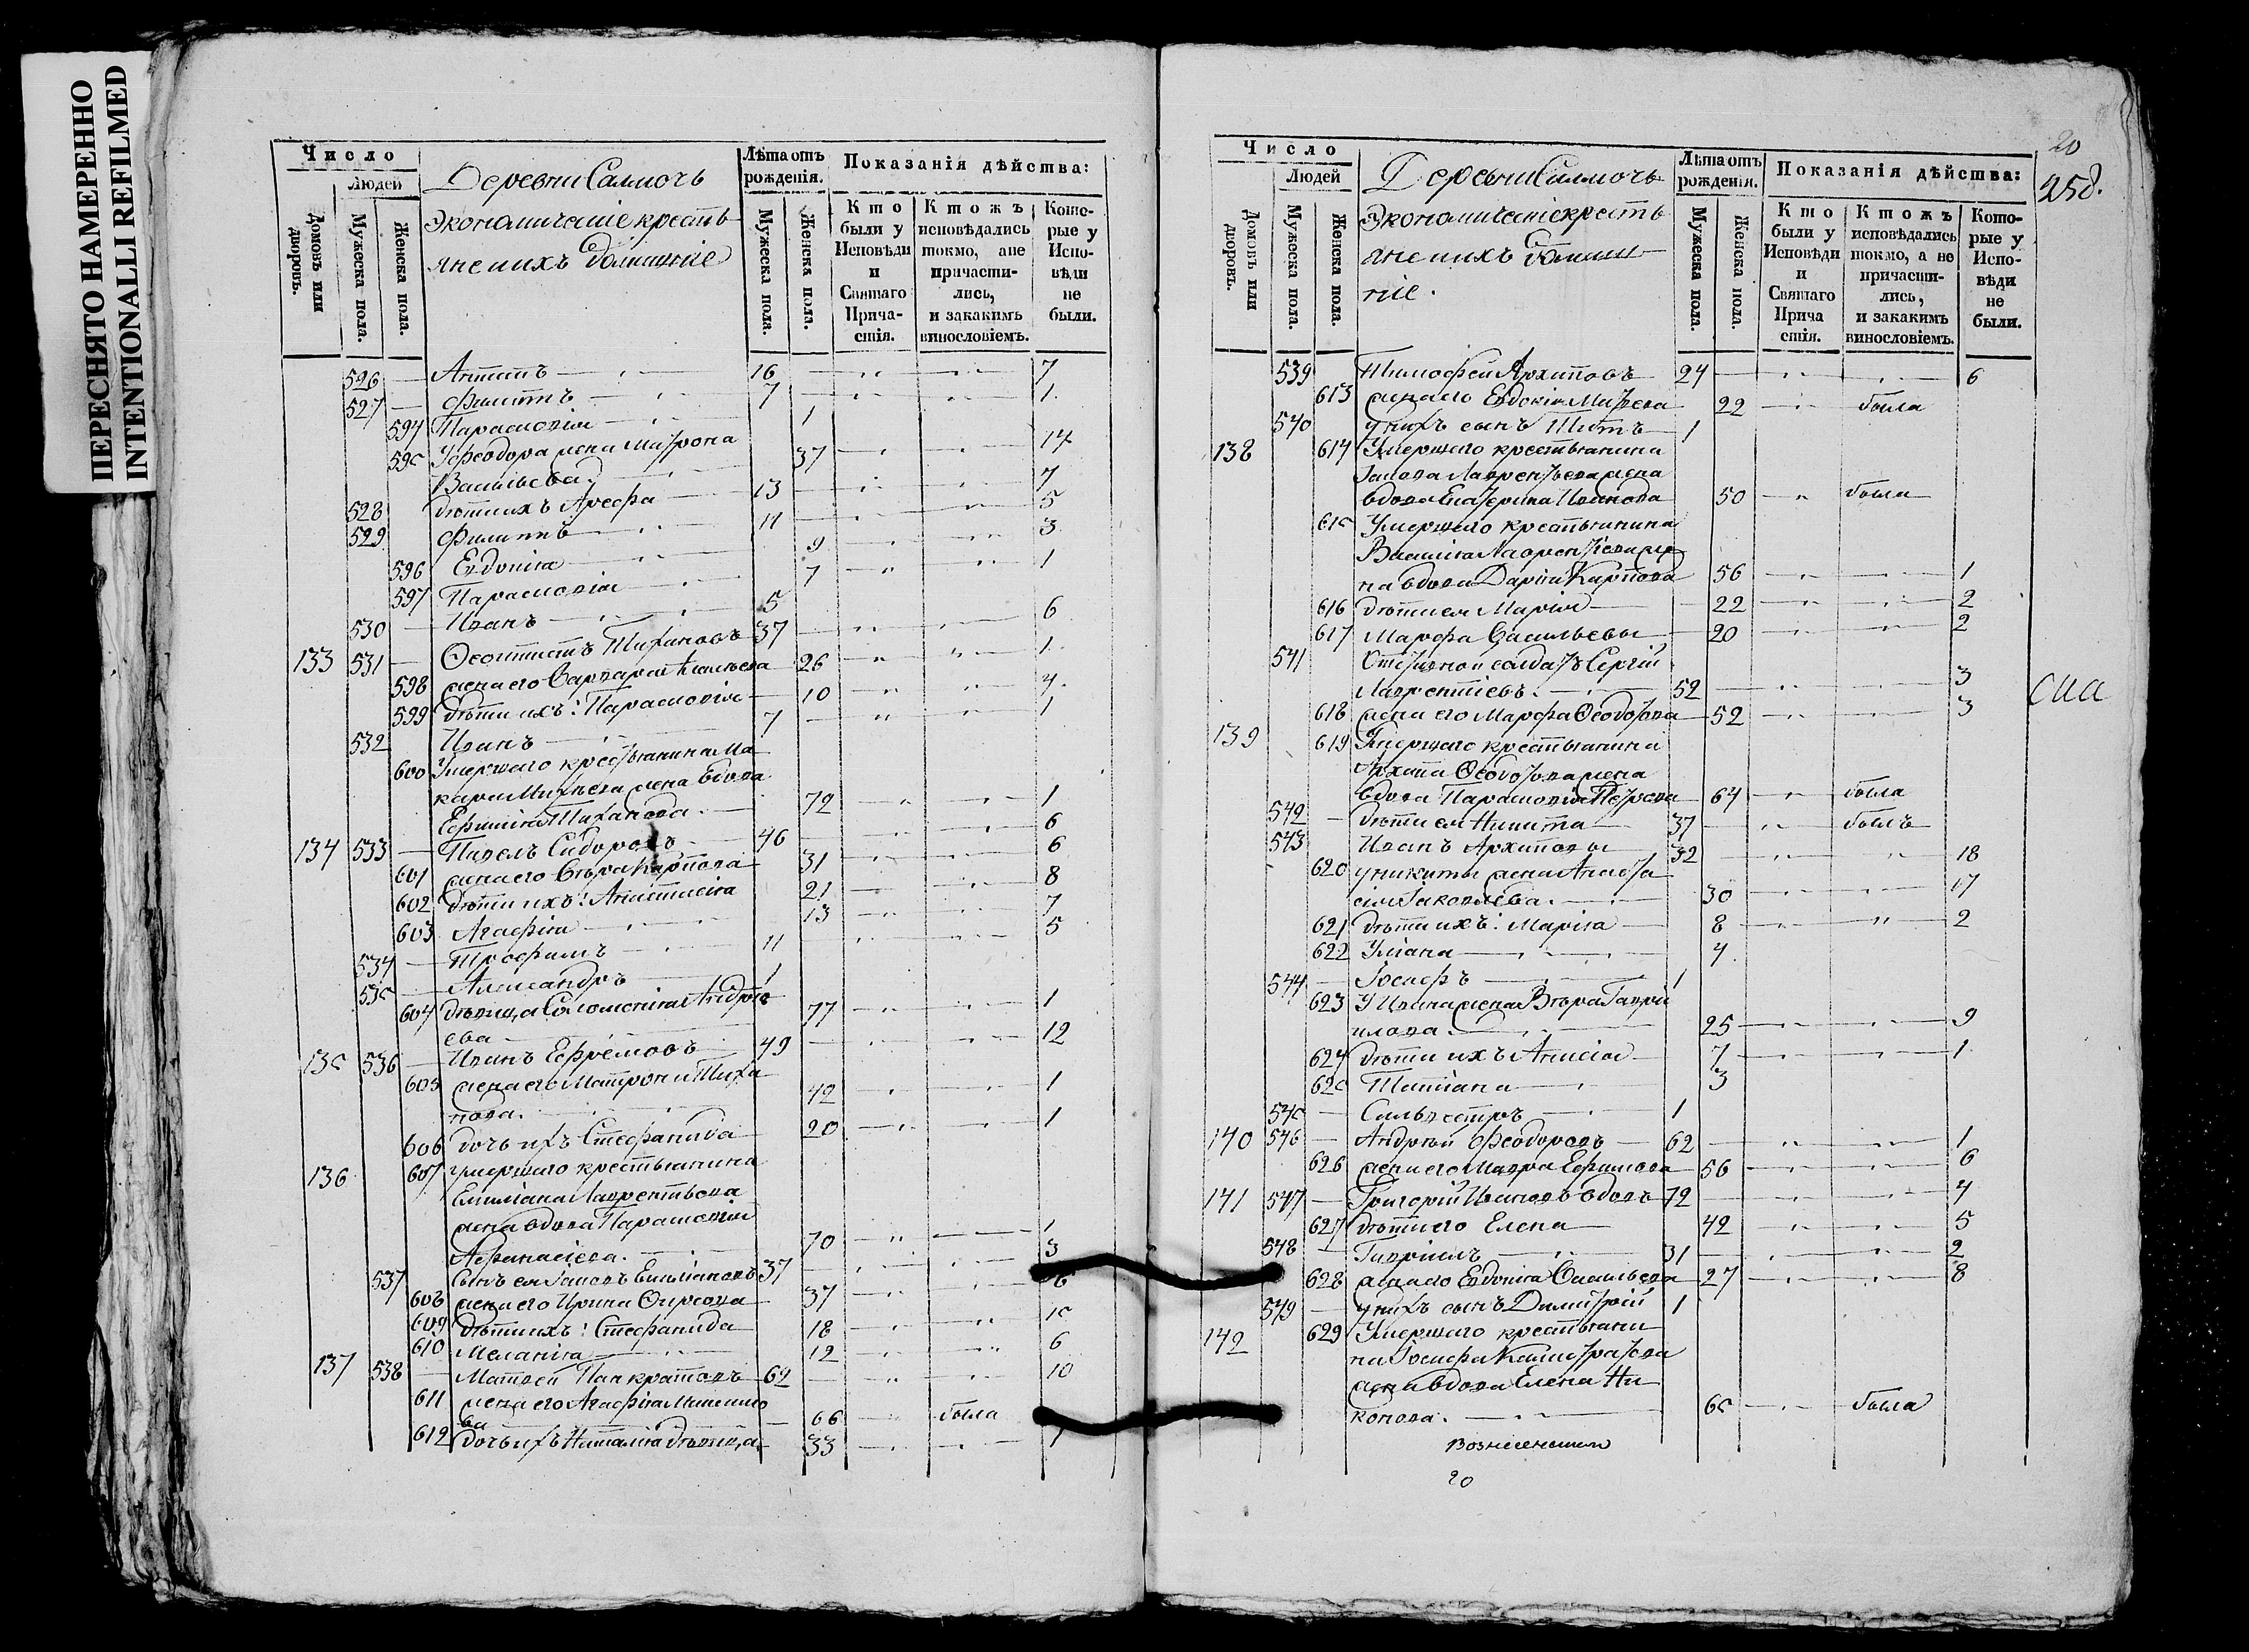 ПЕРЕСНЯТО НАМЕРЕННО
INTENTIONALLI REFILMED
Число
Людей
Домовъ или дворовъ.
Мужеска пола.
Женска пола.
Деревни Салмочь
Экономическіе кресть
яне ихъ домашніе
Лѣта отъ рожденія.
Мужеска пола.
Женска пола.
Показанія дѣйства:
Кто были у Исповѣди и Святаго Причастія.
Ктожъ исповѣдались токмо, а не причастились, и закакимъ винословіемъ.
Которые у Исповѣди не были.
526 Антипъ 16 7
527 Филиппъ 7 1
594 Парасковія 1
595 У Феодора жена Матрона
Васильева 37 14
528 дѣти ихъ Арефа 13 7
529 Филиппъ 11 5
596 Евдокія 9 3
597 Парасковія 7 1
530 Иванъ 5
133 531 Ѳеоктистъ Тихановъ 37 6
598 жена его Варвара 26 1
599 дѣти ихъ: Парасковія 10 4
532 Иванъ 7 1
600 Умершаго крестьянина Ма
кара Михѣева жена вдова
Ефимія Тиханова 72 1
134 533 Павелъ Сидоровъ 46 6
601 жена его Вѣра Карпова 31 6
602 дѣти ихъ: Анастасія 21 8
603 Агафія 13 7
534 Трофимъ 11 5
535 Александръ 1
604 дѣвица Соломонія Андрѣ
ева 77 1
135 536 Иванъ Ефремовъ 49 12
605 жена его Матрона Тиха
нова 42 1
606 дочь ихъ Стефанида 20 1
136 607 Умершаго крестьянина
Емиліана Лаврентьева
жена вдова Парасковія
Афанасіева 70 1
537 сынъ ея Іаковъ Емиліановъ 37 3
608 жена его Ирина Ѳирсова 37 6
609 дѣти ихъ: Стефанида 18 15
610 Меланія 12 6
137 538 Матвей Панкратовъ 62 10
611 жена его Агафія
ва 66 была
612 дочь ихъ Наталія дѣвица 33 1
Число
Людей
Домовъ или дворовъ.
Мужеска пола.
Женска пола.
Деревни Салмочь
Экономическіе кресть
яне ихъ домаш
ніе.
Лѣта отъ рожденія.
Мужеска пола.
Женска пола.
Показанія дѣйства:
Кто были у Исповѣди и Святаго Причастія.
Ктожъ исповѣдались токмо, а не причастились, и закакимъ винословіемъ.
Которые у Исповѣди не были.
20
258.
539 Тимофей Архиповъ 24 6
613 жена его Евдокія 22 была
540 у нихъ сынъ Титъ 1
138 614 Умершаго крестьянина
Іакова Лаврентьева жена
вдова Екатерина Иванова 50 была
615 Умершаго крестьянина
Василія Лаврентіева же
на вдова Дарія Карпова 56 1
616 дѣти ея Марія 22 2
617 Марфа Васильевы 20 2
541 Отставной солдатъ Сергій
Лаврентіевъ 52 3
618 жена его Марфа Ѳеодотова 52 3
139 619 Умершаго крестьянина
Архипа Ѳеодотова жена
вдова Парасковія Петрова 64 была
542 дѣти ея Никита 37 былъ
543 Иванъ Архиповы 32 18
620 у Никиты жена Анаста
сія Іаковлева 30 17
621 дѣти ихъ: Марія 8 2
622 Уліана 4
544 Іосифъ 1
623 У Ивана жена Вѣра Гаврі
илова 25 9
624 дѣти ихъ Анисія 7 1
625 Татіана 3
545 Сильвестръ 1
140 546 Андрей Феодоровъ 62 1
626 жена его Мавра Ефимова 56 6
141 547 Григорій Ивановъ вдовъ 72 4
627 дѣти его Елена 42 5
548 Гавріилъ 31 2
628 жена его Евдокія Васильева 27 8
549 у нихъ сынъ Димитрій 1
142 629 Умершаго крестьяни
на Іосифа Калистратова
жена вдова Елена Ни
конова 65 была
Вознесенской
20